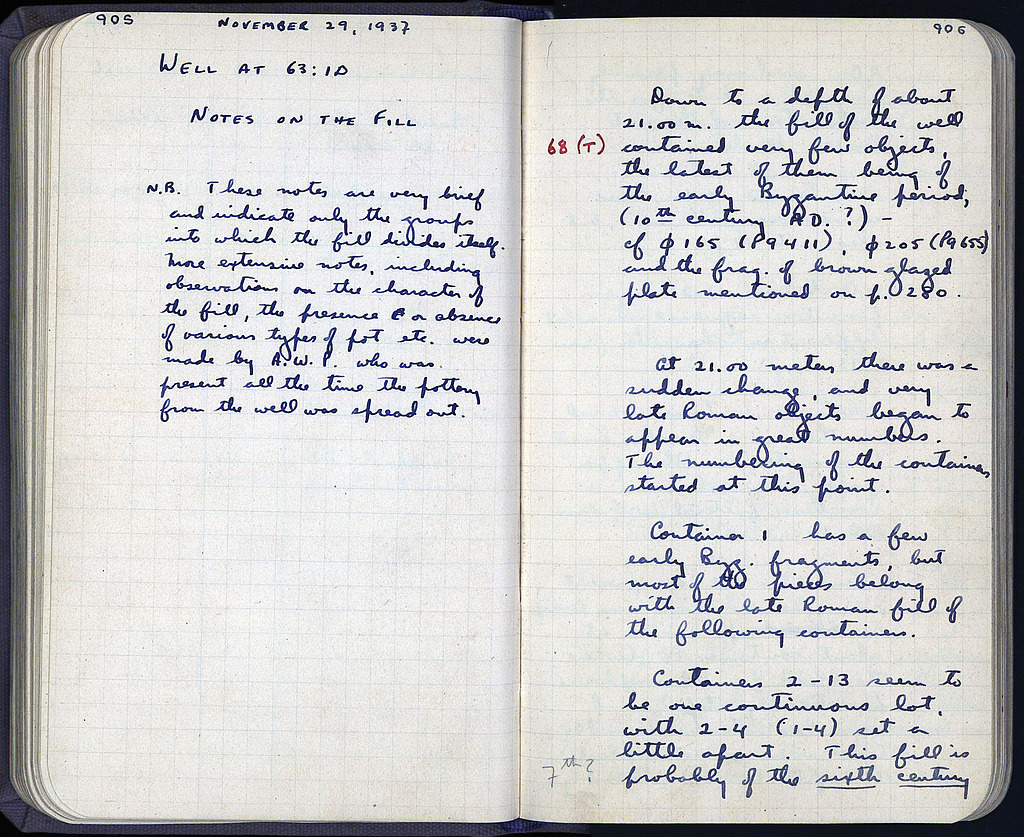 905
NOVEMBER 29, 1937
WELL AT 63:ID
NOTES ON THE FILL
N.B. These notes are very brief
and indicate only the groups
into which the fill divides itself.
More extensive notes, including
observations on the character of
the fill, the presence or absence
of various types of pot etc. were
made by A.W.P. who was
present all the time the pottery
from the well was spread out.
906
Down to a depth of about
21.00 m. the fill of the well
68 (T) contained very few objects,
the latest of them being of
the early Byzantine period,
(10th century A.D. ?) –
cf φ 165 (P9411), φ 205 (P9655)
and the frag. of brown glazed
plate mentioned on p. 280.
At 21.00 meters there was a
sudden change, and very
late Roman objects began to
appear in great numbers.
The numbering of the containers
started at this point.
Container 1 has a few
early Byz. fragments, but
most of the pieces belong
with the late Roman fill of
the following containers.
Containers 2–13 seem to
be one continuous lot,
with 2–4 (1–4) set a
little apart. This fill is
7th? probably of the sixth century